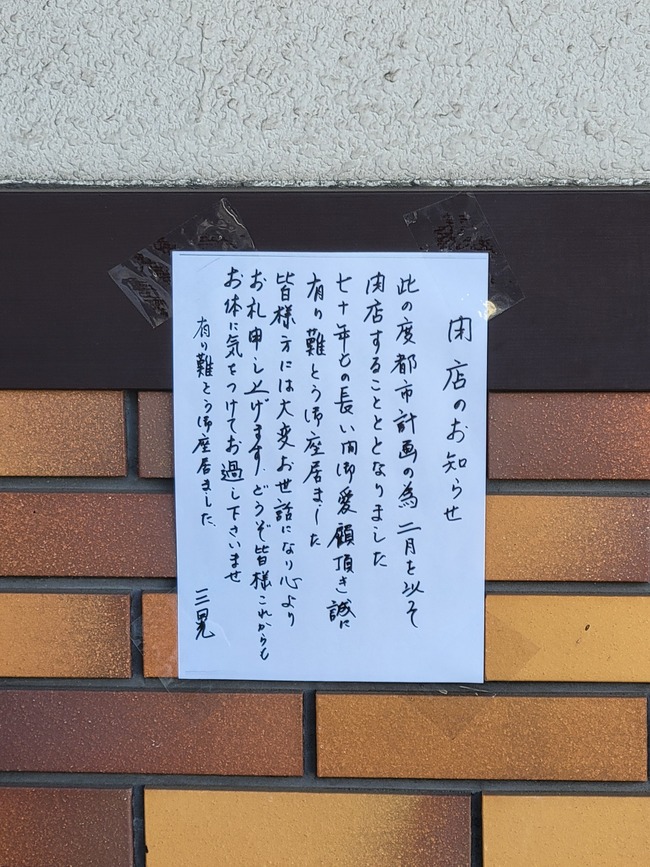 閉店のお知らせ
此の度都市計画の為二月を以そ
閉店することとなりました
七十年もの長い間御愛顧頂き誠に
有り難とう御座居ました
皆様方には大変お世話になり心より
お礼申し上げます.どうぞ皆様これからも
お体に気をつけてお過し下さいませ
有り難とう御座居ました、
三晃